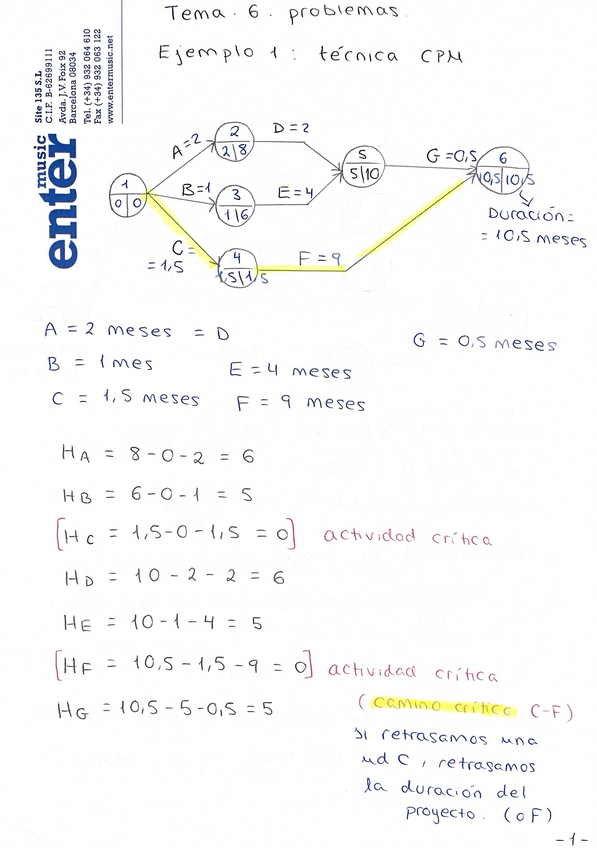 Tema. 6. problemas.
Ejemplo 1: técnica CPM
enter music
Site 135 S.L
C.I.F. B-62699111
Avda. J.V. Foix 92
Barcelona 08034
Tel. (+34) 932 064 610
Fax (+34) 932 063 122
www.entermusic.net
A=2
2
2|8
D=2
5
5|10
G=0,5
6
10,5|10,5
Duración=
= 10,5 meses
1
0|0
B=1
3
1|6
E=4
C=
=1,5
4
1,5|1,5
F=9
A = 2 meses = D
G = 0,5 meses
B = 1 mes
E = 4 meses
C = 1,5 meses
F = 9 meses
HA = 8-0-2 = 6
HB = 6-0-1 = 5
[HC = 1,5-0-1,5 = 0] actividad crítica
HD = 10-2-2 = 6
HE = 10-1-4 = 5
[HF = 10,5-1,5-9 = 0] actividad crítica
HG = 10,5-5-0,5 = 5
(camino crítico (C-F)
Si retrasamos una
ud C, retrasamos
la duración del
proyecto. (o F)
-1-